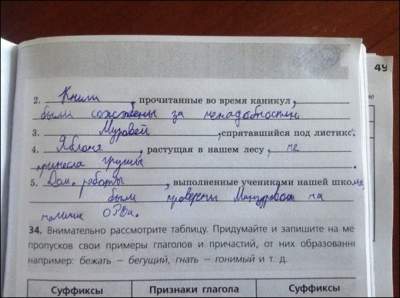 4У
2. Книги, прочитанные во время каникул,
были сожжены за ненадобностью
3. Муравей, спрятавшийся под листик
4. Яблоня, растущая в нашем лесу, не
принесла груши
5. Дом. работы, выполненные учениками нашей школы
были проверены на
наличие ОРВи.
34. Внимательно рассмотрите таблицу. Придумайте и запишите на ме
пропусков свои примеры глаголов и причастий, от них образованн
например: бежать — бегущий, гнать — гонимый и т. д.
Суффиксы Признаки глагола Суффиксы